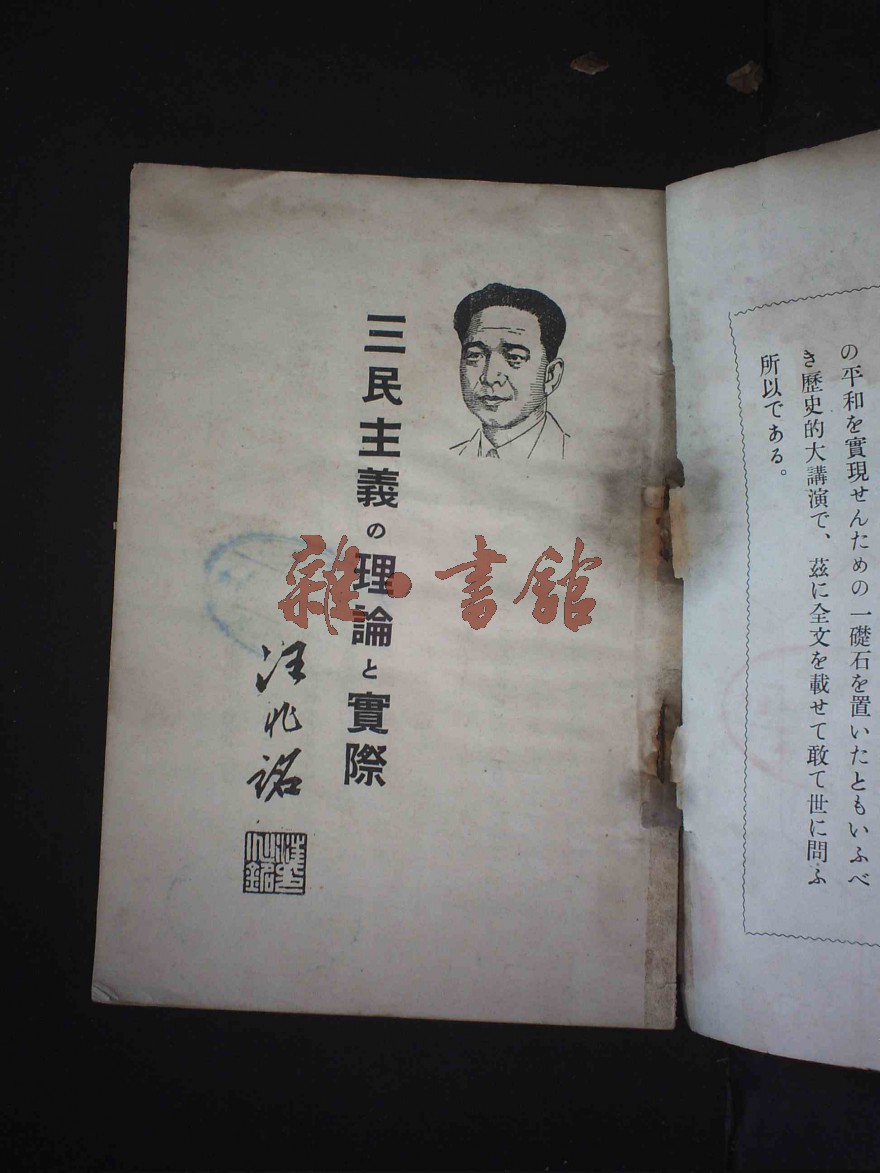 の平和を實現せんための一礎石を置いたともいふべ
き歷史的大講演で、茲に全文を載せて敢て世に問ふ
所以である。
三民主義の理論と實際
汪兆銘
汪兆銘
雜·書館